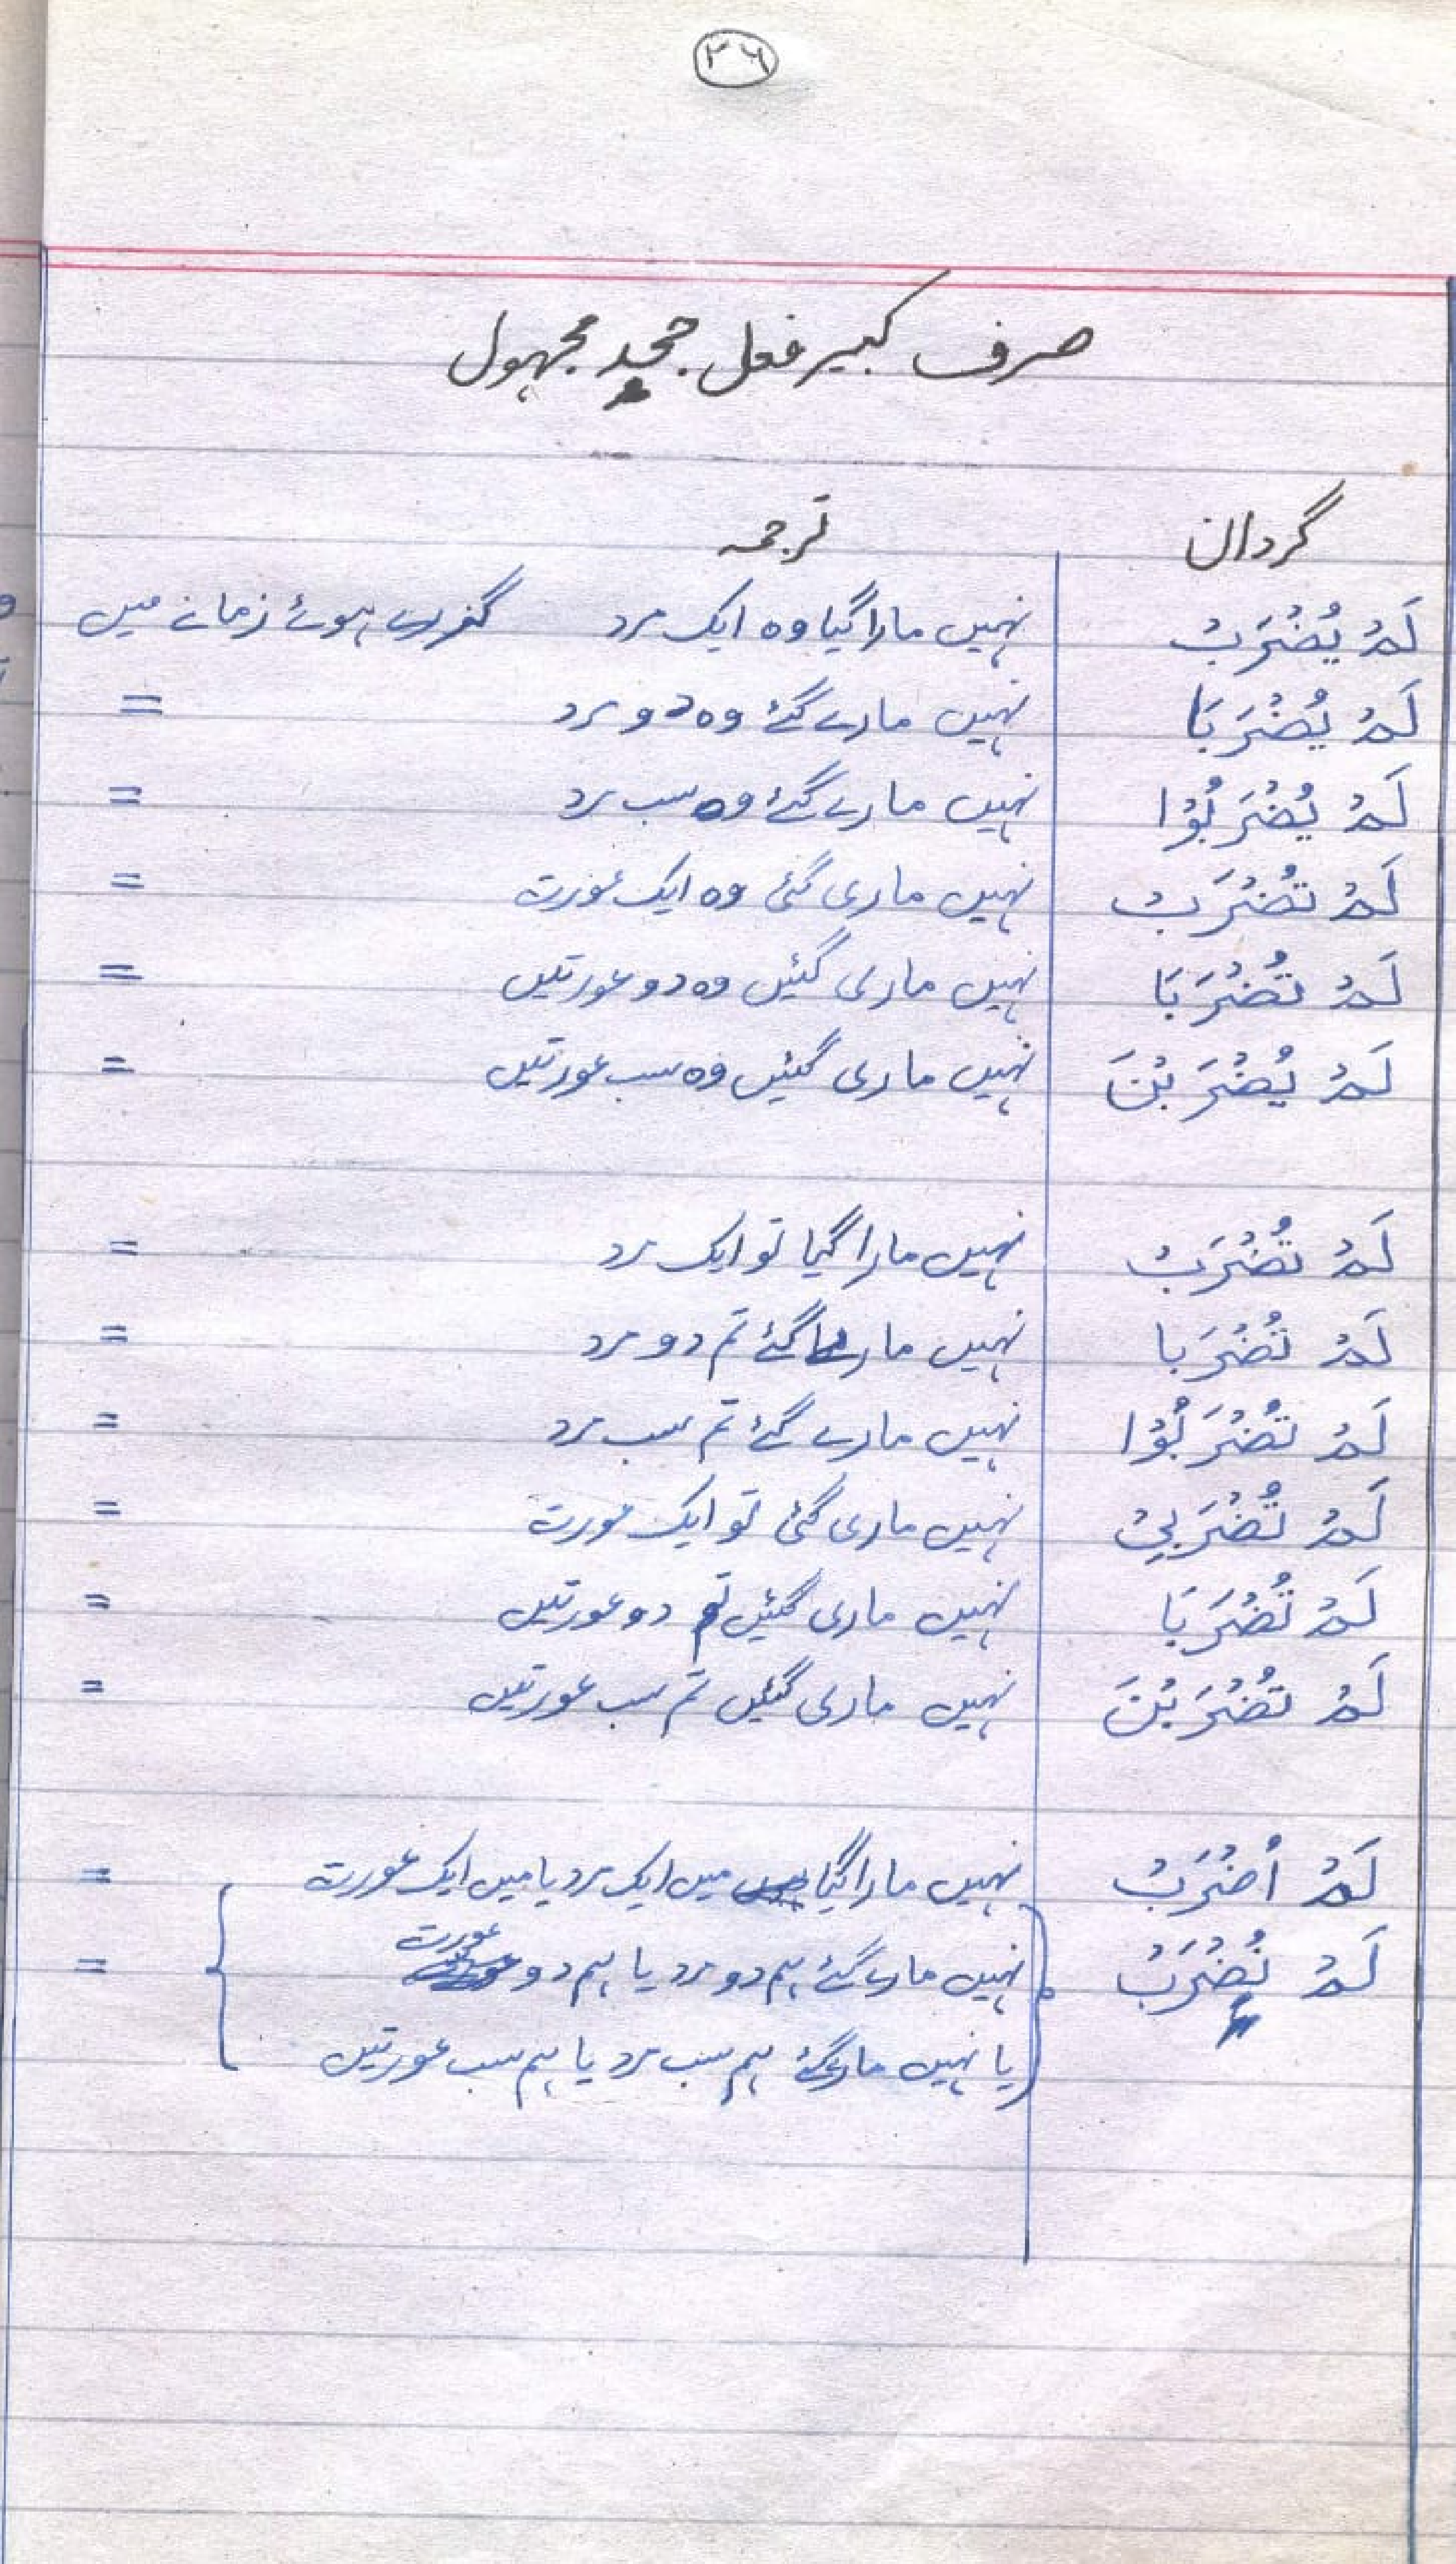 ۳۶
صرف کبیر فعل جحد مجہول
گردان ترجمہ
لَمْ يُضْرَبْ نہیں مارا گیا وہ ایک مرد گزرے ہوئے زمانے میں
لَمْ يُضْرَبَا نہیں مارے گئے وہ دو مرد =
لَمْ يُضْرَبُوْا نہیں مارے گئے وہ سب مرد =
لَمْ تُضْرَبْ نہیں ماری گئی وہ ایک عورت =
لَمْ تُضْرَبَا نہیں ماری گئیں وہ دو عورتیں =
لَمْ يُضْرَبْنَ نہیں ماری گئیں وہ سب عورتیں =
لَمْ تُضْرَبْ نہیں مارا گیا تو ایک مرد =
لَمْ تُضْرَبا نہیں مارے گئے تم دو مرد =
لَمْ تُضْرَبُوْا نہیں مارے گئے تم سب مرد =
لَمْ تُضْرَبِيْ نہیں ماری گئی تو ایک عورت =
لَمْ تُضْرَبَا نہیں ماری گئیں تم دو عورتیں =
لَمْ تُضْرَبْنَ نہیں ماری گئیں تم سب عورتیں =
لَمْ اُضْرَبْ نہیں مارا گیا میں ایک مرد یا میں ایک عورت =
لَمْ نُضْرَبْ نہیں مارے گئے ہم دو مرد یا ہم دو عورت =
یا نہیں مارے گئے ہم سب مرد یا ہم سب عورتیں